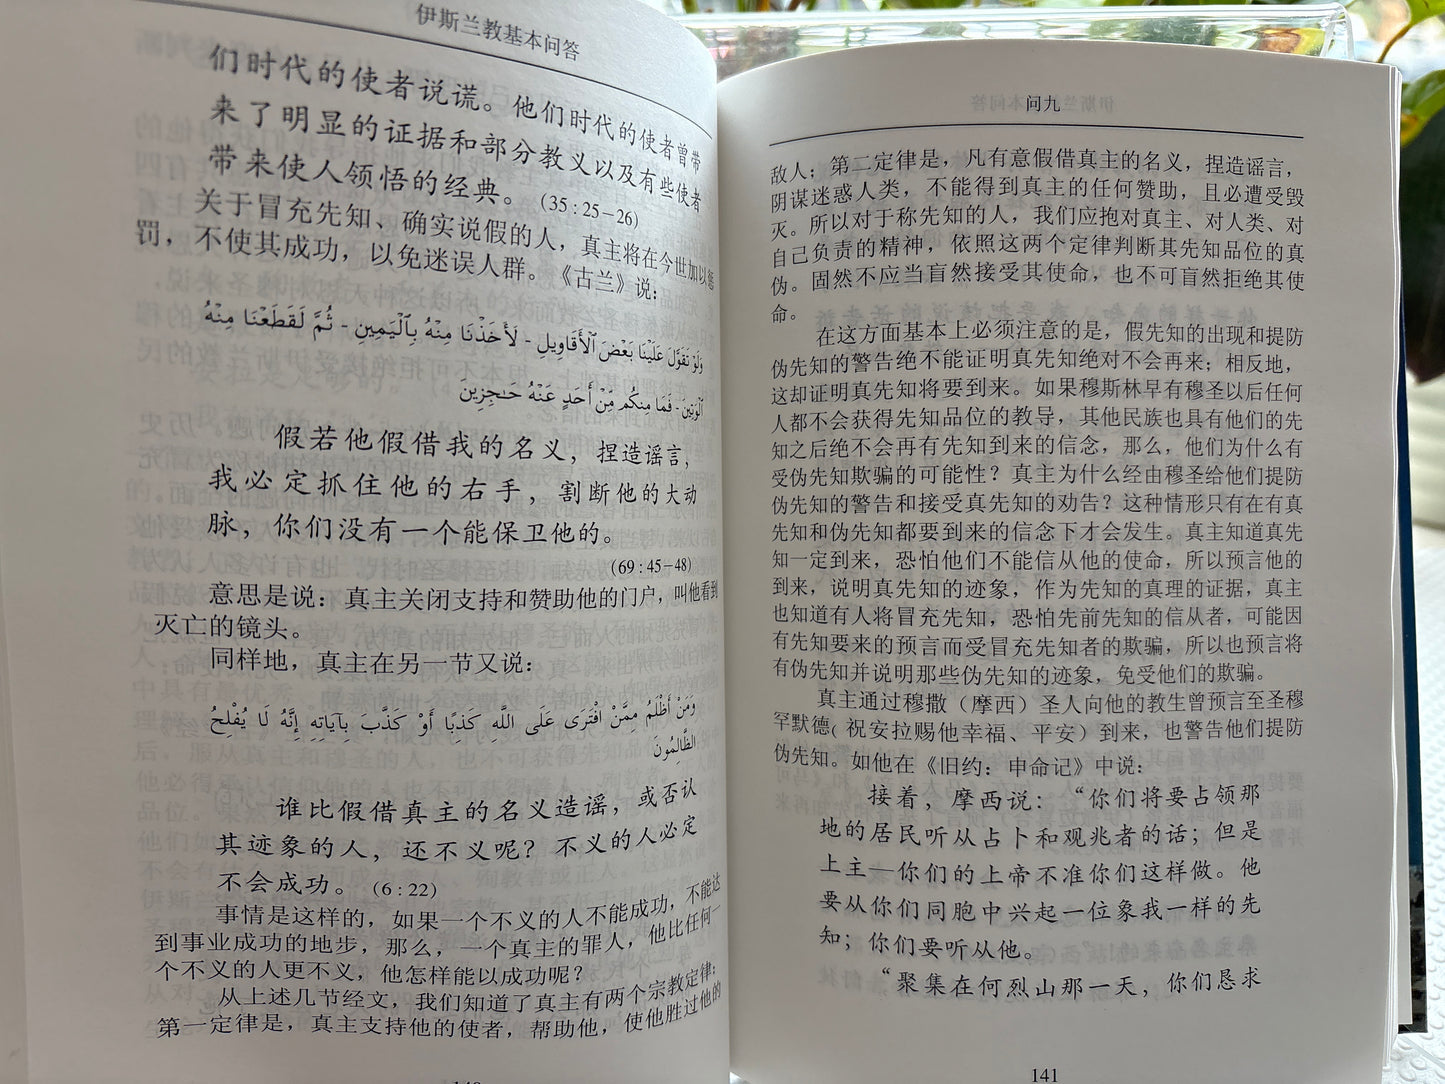 伊斯兰教基本问答
们时代的使者说谎。他们时代的使者曾带
来了明显的证据和部分教义以及有些使者
带来使人领悟的经典。(35:25-26)
关于冒充先知、确实说假的人，真主将在今世加以惩
罚，不使其成功，以免迷误人群。《古兰》说：
وَلَوْ تَقَوَّلَ عَلَيْنَا بَعْضَ ٱلْأَقَاوِيلِ - لَأَخَذْنَا مِنْهُ بِٱلْيَمِينِ - ثُمَّ لَقَطَعْنَا مِنْهُ
ٱلْوَتِينَ - فَمَا مِنكُم مِّنْ أَحَدٍ عَنْهُ حَـٰجِزِينَ
假若他假借我的名义，捏造谣言，
我必定抓住他的右手，割断他的大动
脉，你们没有一个能保卫他的。
(69:45-48)
意思是说：真主关闭支持和赞助他的门户，叫他看到
灭亡的镜头。
同样地，真主在另一节又说：
وَمَنْ أَظْلَمُ مِمَّنْ افْتَرَى عَلَى اللَّهِ كَذِبًا أَوْ كَذَّبَ بِآيَاتِهِ إِنَّهُ لَا يُفْلِحُ
الظَّالِمُونَ
谁比假借真主的名义造谣，或否认
其迹象的人，还不义呢？不义的人必定
不会成功。(6:22)
事情是这样的，如果一个不义的人不能成功，不能达
到事业成功的地步，那么，一个真主的罪人，他比任何一
个不义的人更不义，他怎样能以成功呢？
从上述几节经文，我们知道了真主有两个宗教定律：
第一定律是，真主支持他的使者，帮助他，使他胜过他的
140
问九
敌人；第二定律是，凡有意假借真主的名义，捏造谣言，
阴谋迷惑人类，不能得到真主的任何赞助，且必遭受毁
灭。所以对于称先知的人，我们应抱对真主、对人类、对
自己负责的精神，依照这两个定律判断其先知品位的真
伪。固然不应当盲然接受其使命，也不可盲然拒绝其使
命。
在这方面基本上必须注意的是，假先知的出现和提防
伪先知的警告绝不能证明真先知绝对不会再来；相反地，
这却证明真先知将要到来。如果穆斯林早有穆圣以后任何
人都不会获得先知品位的教导，其他民族也具有他们的先
知之后绝不会再有先知到来的信念，那么，他们为什么有
受伪先知欺骗的可能性？真主为什么经由穆圣给他们提防
伪先知的警告和接受真先知的劝告？这种情形只有在有真
先知和伪先知都要到来的信念下才会发生。真主知道真先
知一定到来，恐怕他们不能信从他的使命，所以预言他的
到来，说明真先知的迹象，作为先知的真理的证据，真主
也知道有人将冒充先知，恐怕先前先知的信从者，可能因
有先知要来的预言而受冒充先知者的欺骗，所以也预言将
有伪先知并说明那些伪先知的迹象，免受他们的欺骗。
真主通过穆撒（摩西）圣人向他的教生曾预言至圣穆
罕默德（祝安拉赐他幸福、平安）到来，也警告他们提防
伪先知。如他在《旧约：申命记》中说：
接着，摩西说：“你们将要占领那
地的居民听从占卜和观兆者的话；但是
上主—你们的上帝不准你们这样做。他
要从你们同胞中兴起一位象我一样的先
知；你们要听从他。
“聚集在何烈山那一天，你们恳求
141